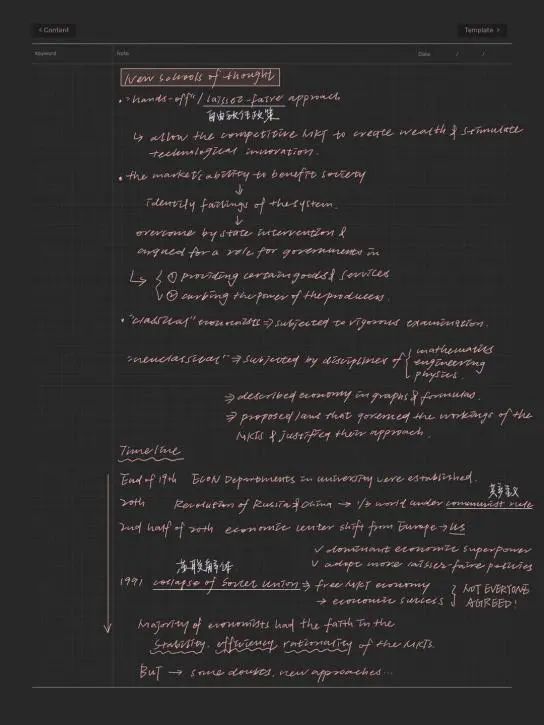 < Content
Template >
Keyword
Note:
Date: / /
New schools of thought
• "hands-off" / laissez-faire approach
自由放任政策
↳ allow the competitive MKT to create wealth & stimulate
technological innovation.
• the market's ability to benefit society
↓
identify failings of the system.
↓
overcome by state intervention &
argued for a role for governments in
↳ { ① providing certain goods & services
② curbing the power of the producers.
• "classical" economists ⇒ subjected to vigorous examination.
"neuclassical" ⇒ subjected by disciplines of { mathematics
engineering
physics.
⇒ described economy in graphs & formulas.
⇒ proposed laws that governed the workings of the
MKTs & justified their approach.
Timeline
End of 19th ECON Departments in university were established.
共产主义
20th Revolution of Russia & China → 1/2 world under communist rule
2nd half of 20th economic center shift from Europe → US
✓ dominant economic superpower
✓ adopt more laissez-faire policies
苏联解体
1991 collapse of Soviet Union ⇒ free MKT economy
→ economic success } NOT EVERYONE
AGREED!
Majority of economists had the faith in the
stability, efficiency rationality of the MKTs.
BUT → some doubts, new approaches...